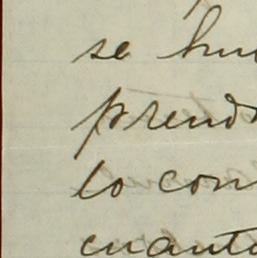 se hu
prend
lo con
cuanto